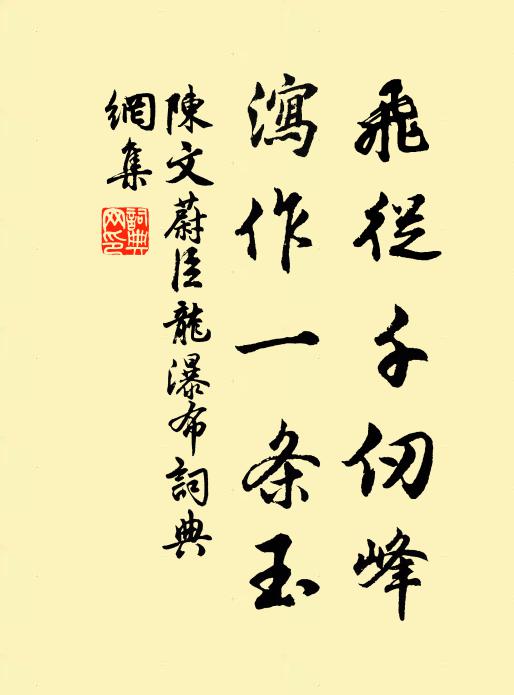 飛從千仞峰
瀉作一条玉
陳文蔚臣龍瀑布詞典
網集
詞典
网印